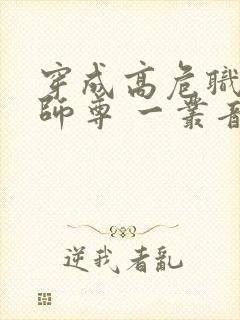 穿成高危職
師尊 一叢音
逆我者亂